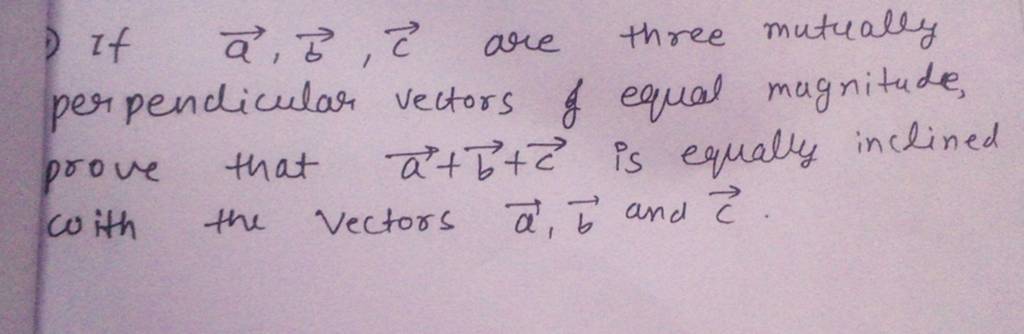 ) If a⃗, b⃗, c⃗ are three mutually
perpendicular vectors of equal magnitude,
prove that a⃗+b⃗+c⃗ is equally inclined
with the vectors a⃗, b⃗ and c⃗.